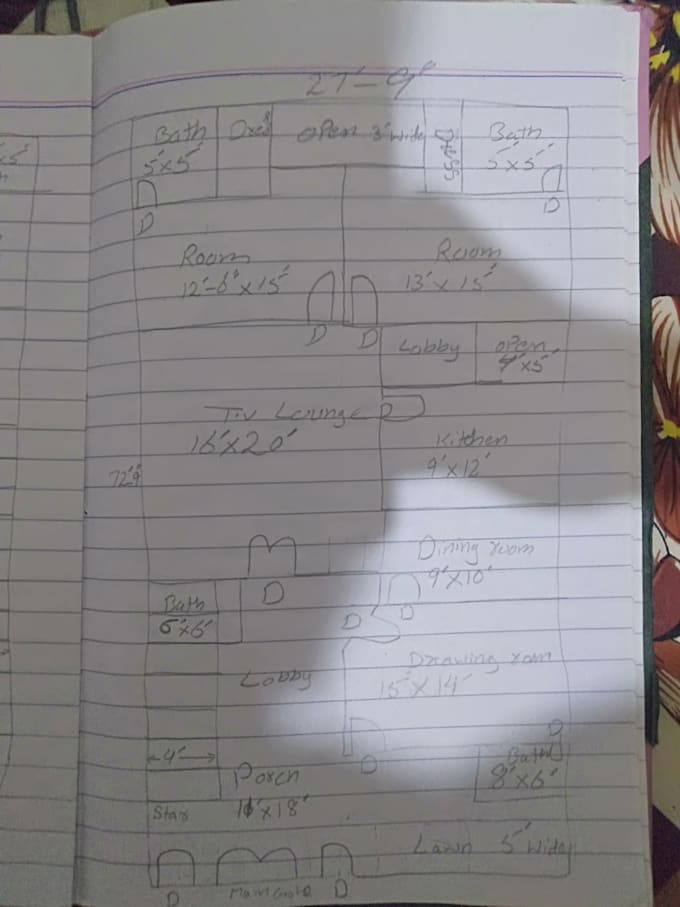 27'-9"
Bath Dres open 3' wide Dress Bath
5'x5' 5'x5'
D D
Room Room
12'-6"x15' 13'x15'
D D
Lobby open
4'x5'
T.v Lounge D
16'x20' Kitchen
9'x12'
72'9"
Dining room
9'x10'
D D
Bath D
5'x6'
Drawing room
Lobby 15'x14'
D
4' D
Porch Bath
8'x6'
Stair 18'
Lawn 5' wide
D Main Gate D